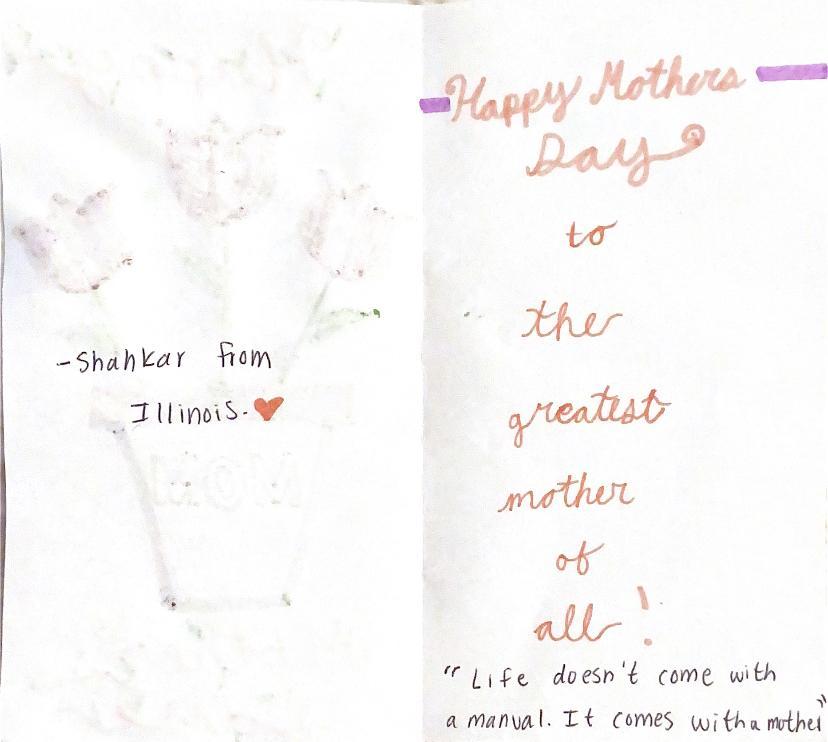 -Shahkar from
Illinois.
MOM
Happy Mothers
Day
to
the
greatest
mother
of
all!
"Life doesn't come with
a manual. It comes with a mother"